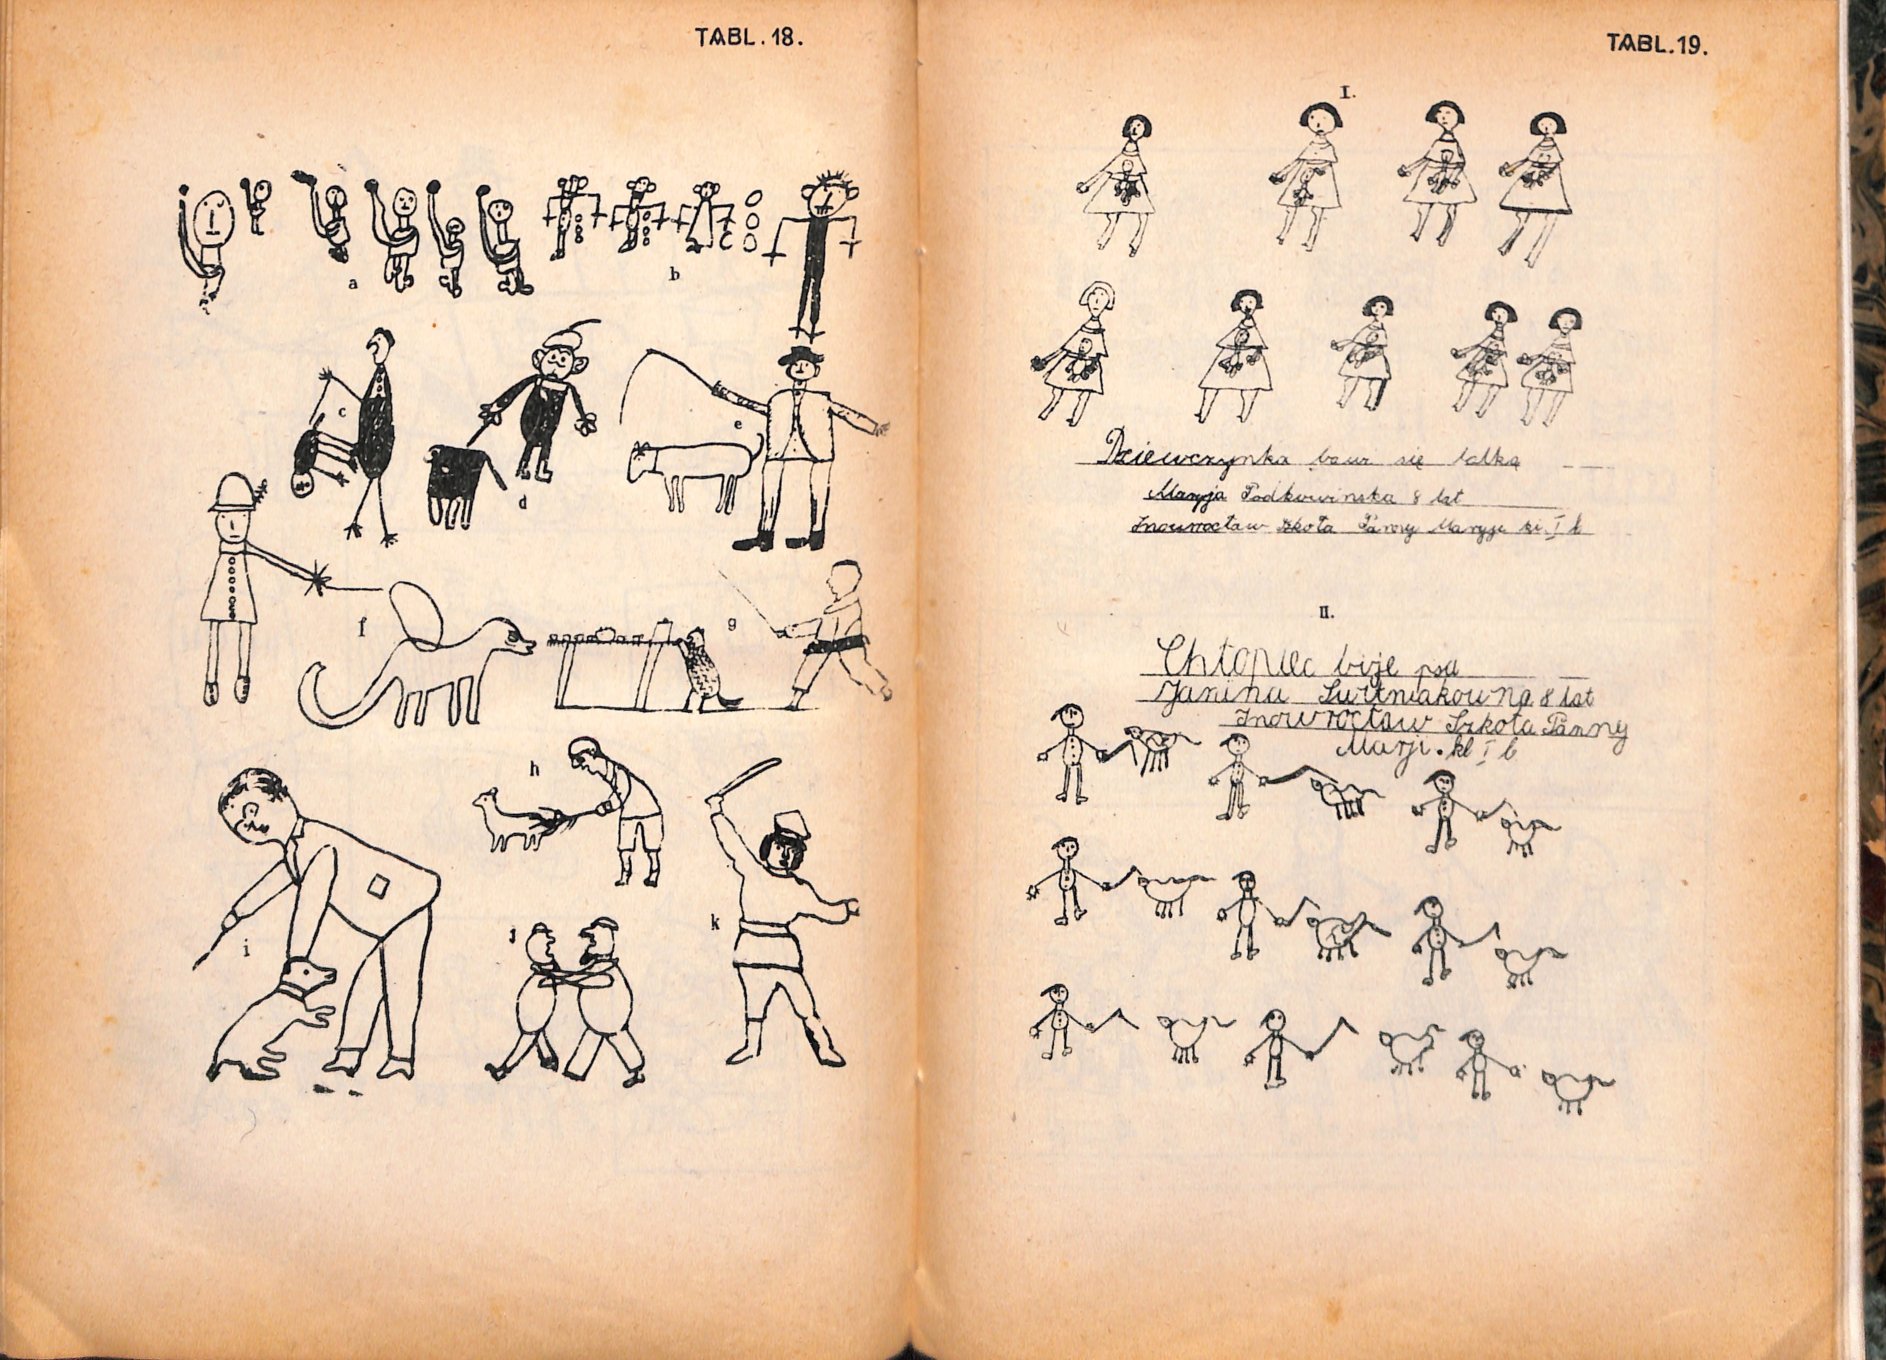 TABL. 18.
a
b
c
d
e
f
g
h
i
j
k
TABL. 19.
I.
Dziewczynka bawi się lalką
Maryja Podkowinska 8 lat
Inowrocław Szkoła Panny Maryje kl. I b
II.
Chłopiec bije psa
Janina 8 lat
Inowrocław Szkoła Panny
Marji. kl I b